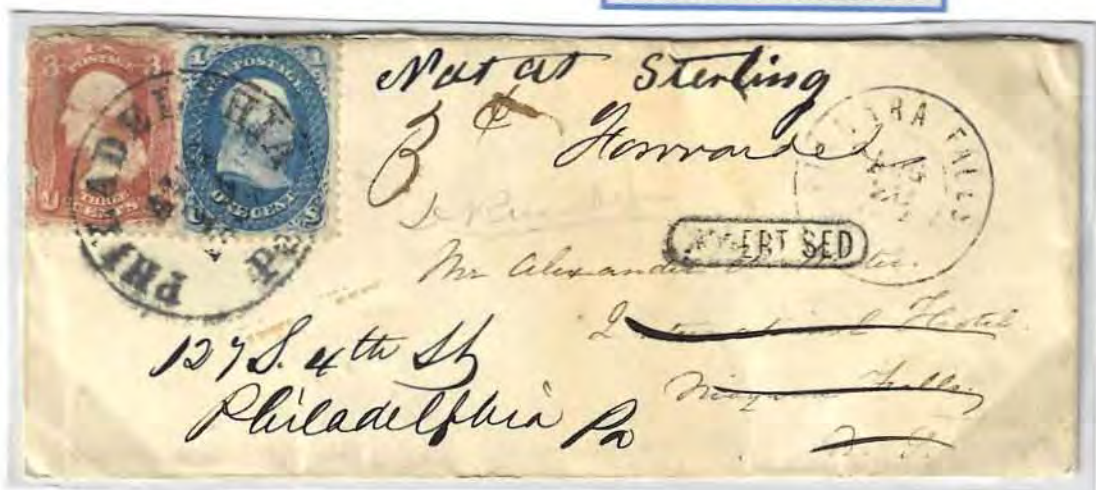 3 POSTAGE 3
THREE CENTS
1 POSTAGE 1
ONE CENT
PHILADELPHIA Pa
Not at Sterling
3 ¢ Forwarded
FALLS
Mr Alexander
International Hotel
Niagara Falls
N. Y.
127 S. 4th St
Philadelphia Pa